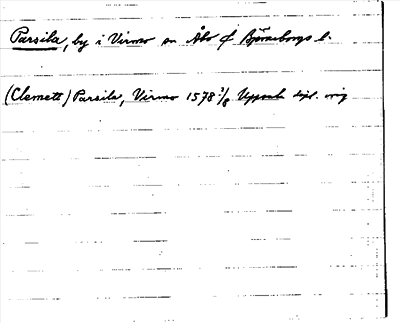 Parsila, by i Virmo sn Åbo o Björneborgs l.
(Clemett) Parsila, Virmo 1578 3/8 Uppsala dipl. orig